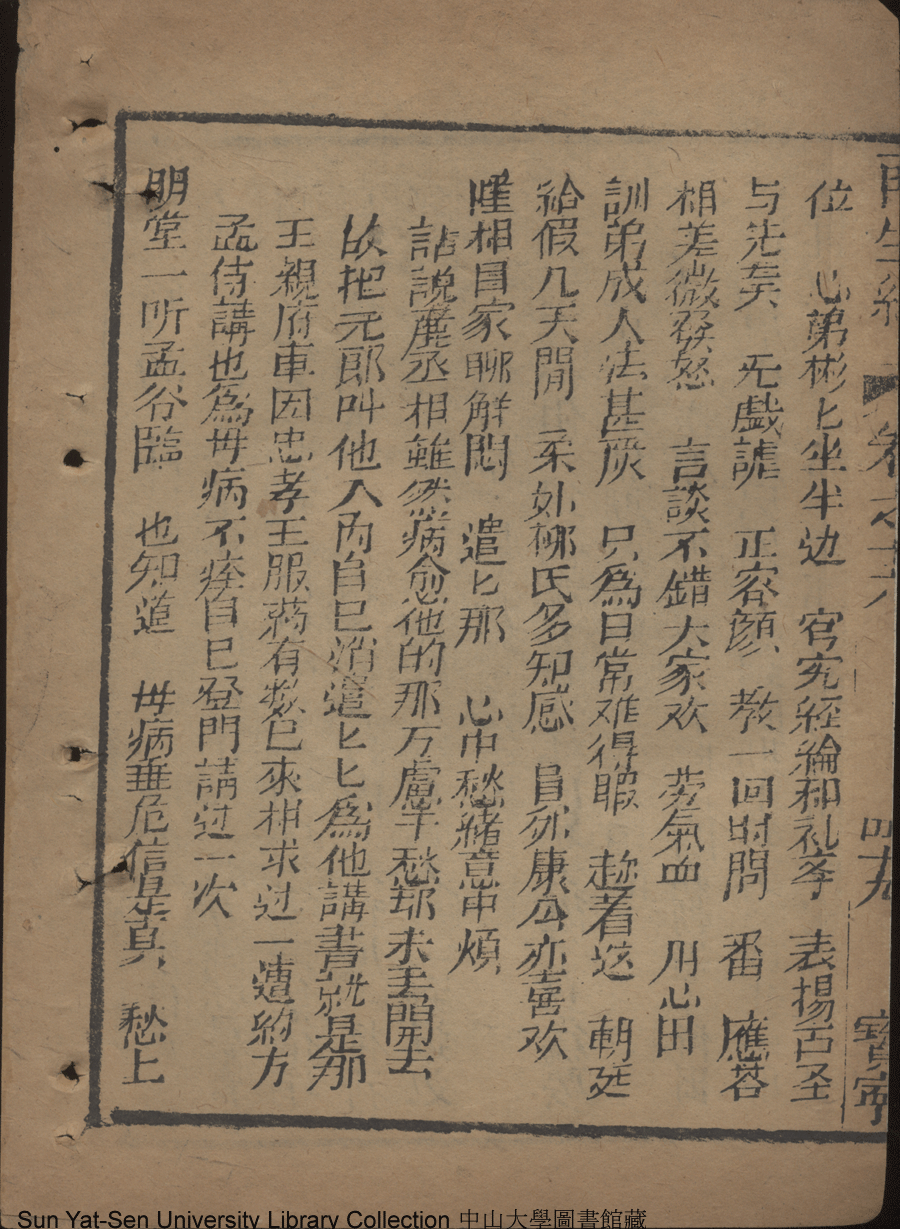 再生緣 卷之十八 四十九 寶寧
位 心弟彬匕坐半边 官究經綸和礼孝 表揚古圣
与先矣 无戲謔 正容顏 教一回时問一番 應荅
相差微發怒 言談不錯大家欢 劳氣血 用心田
訓弟成人法甚嚴 只為日常难得暇 趂着这 朝廷
給假几天閒 柔妣柳氏多知感 員外康公亦喜欢
惟相国家聊解悶 遣匕那 心中愁緒意中煩
話說酈丞相雖然病愈他的那万慮千愁却未丢開去
故把元郎叫他入內自已消遣匕匕為他講書就是那
王親府車因忠孝王服葯有效已來相求过一遭約方
孟侍講也為毋病不痊自已登門請过一次
明堂一听孟谷臨 也知道 毋病垂危信是真 愁上
Sun Yat-Sen University Library Collection 中山大學圖書館藏